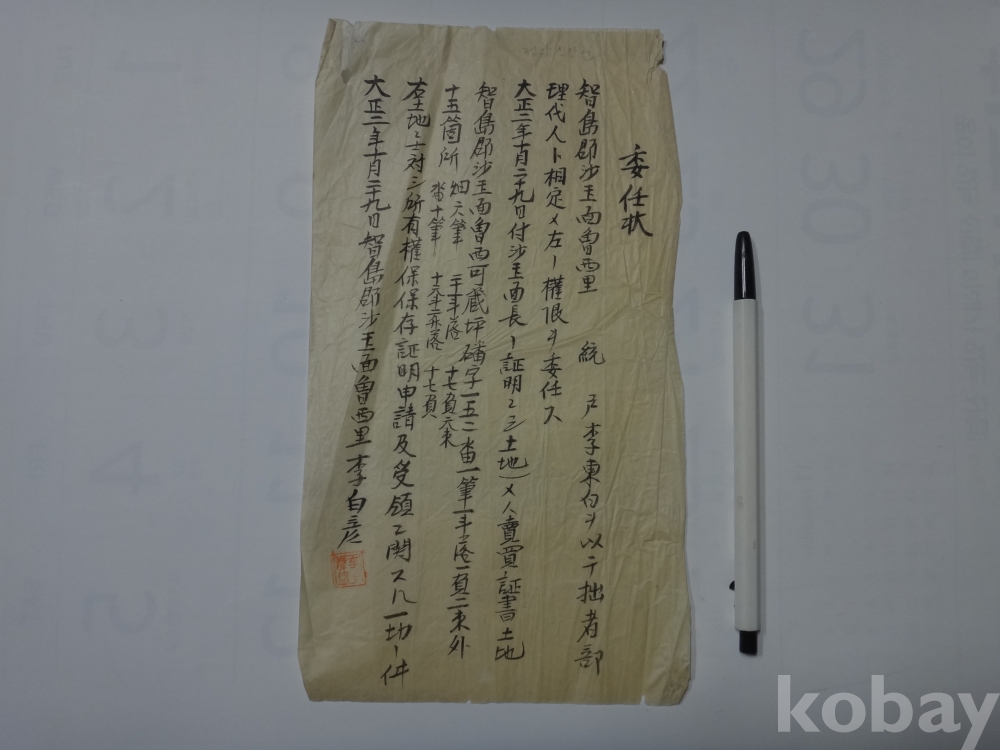 委任狀
智島郡沙玉面魯西里 統 戶李東白ヲ以テ拙者部
理代人ト相定メ左ノ權限ヲ委任ス
大正二年十月二十九日付沙玉面長ノ証明 土地 賣買証書土地
智島郡沙玉面魯西可蔵坪 字一五二畓一筆一斗落一負二束外
十五箇所 畑六筆 二十一斗落 十七負六束
畓十筆 落 十七負
右土地ニ対シ所有權保保存証明申請及受領ニ関スル一切ノ件
大正二年十月二十九日智島郡沙玉面魯西里李白彦
kobay